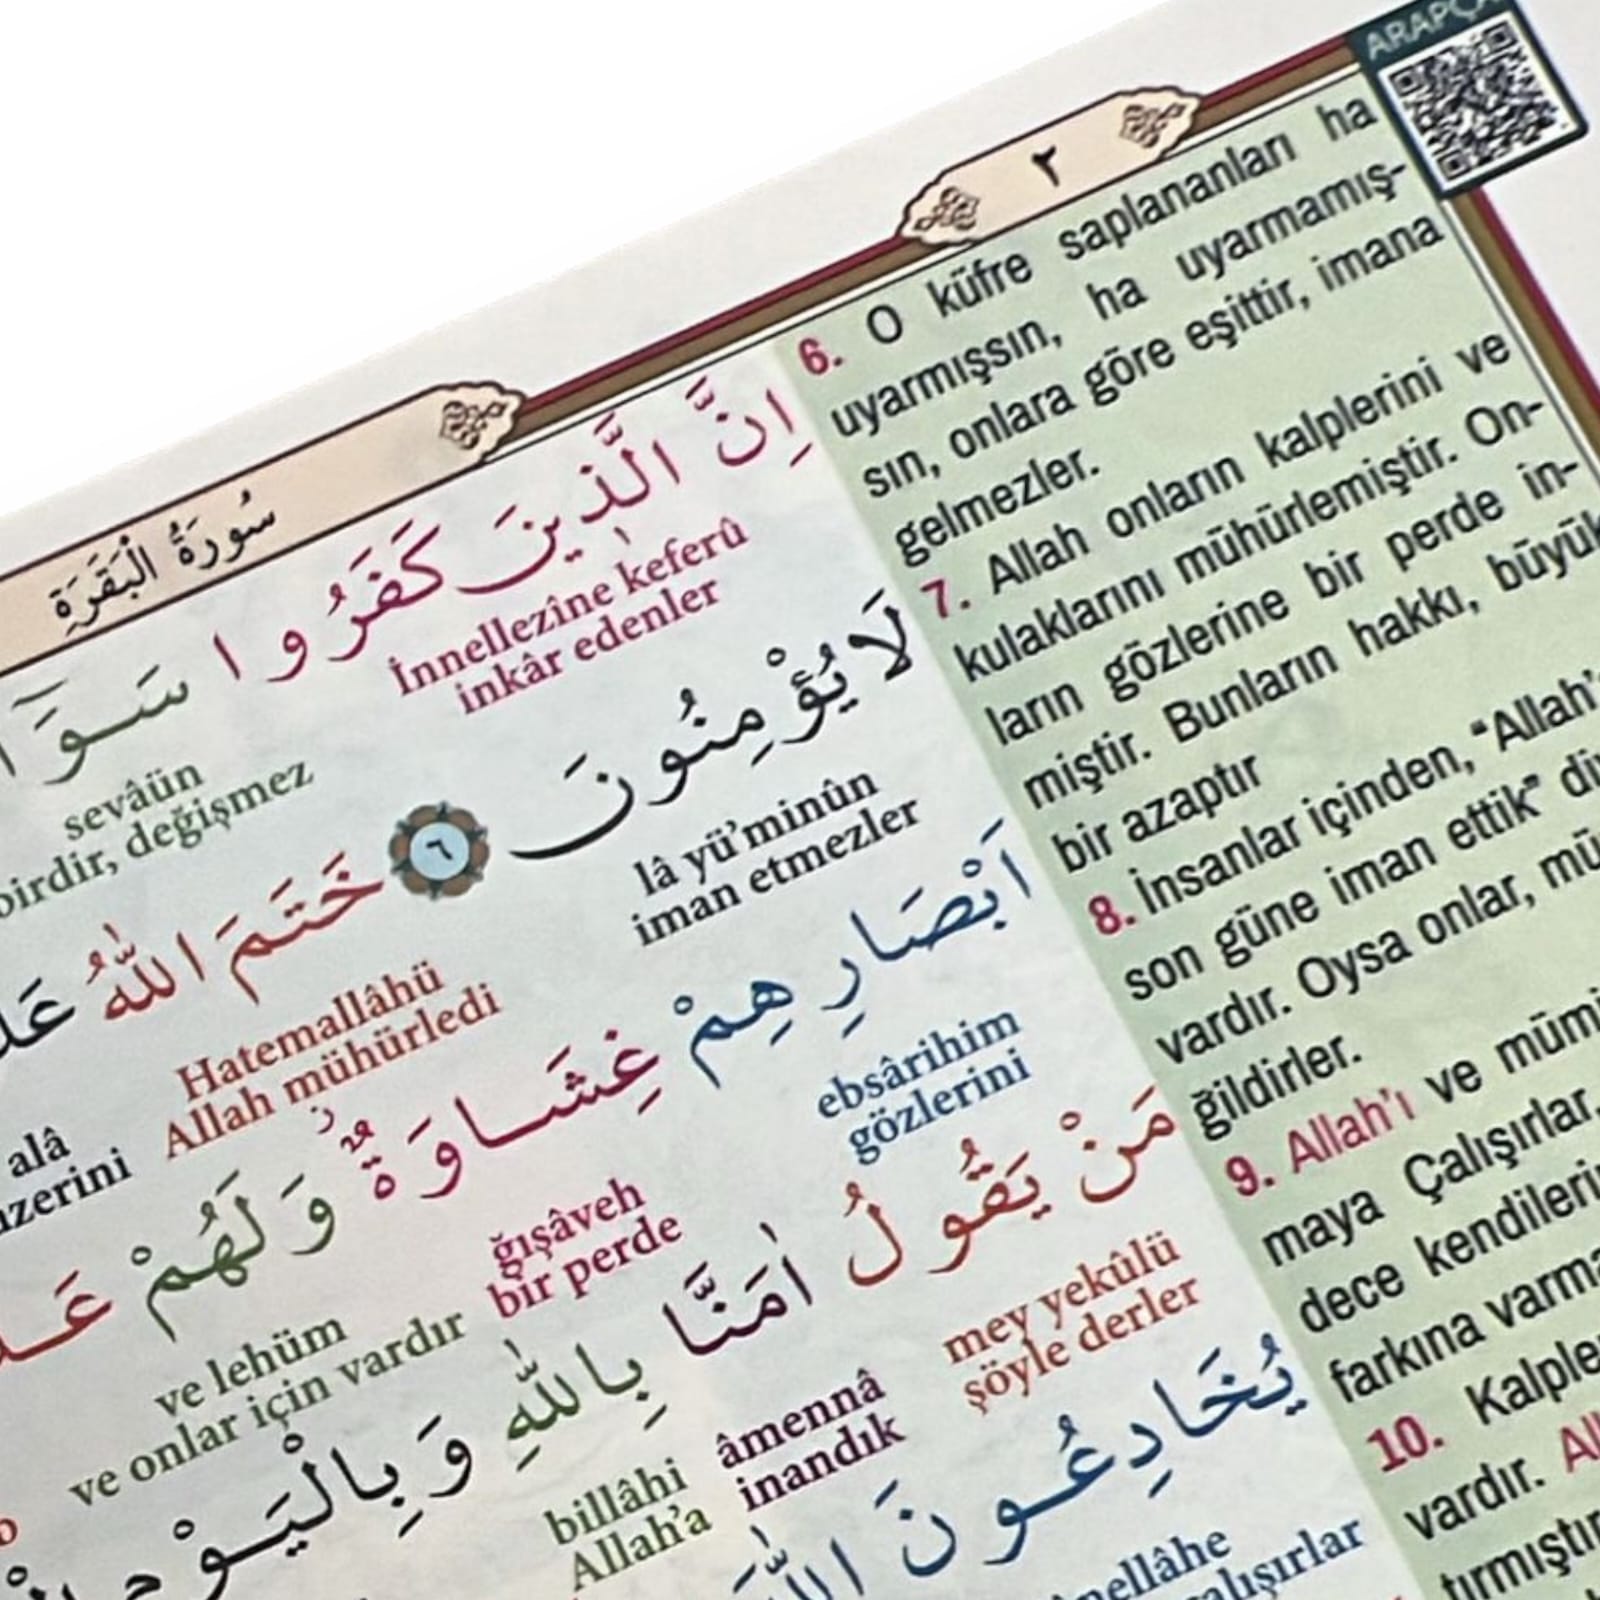 ARAPÇA
٢
سُورَةُ الْبَقَرَةِ
6. O küfre saplananları ha
uyarmışsın, ha uyarmamış-
sın, onlara göre eşittir, imana
gelmezler.
7. Allah onların kalplerini ve
kulaklarını mühürlemiştir. On-
ların gözlerine bir perde in-
miştir. Bunların hakkı, büyük
bir azaptır
8. İnsanlar içinden, “Allah’
son güne iman ettik” di
vardır. Oysa onlar, mü
ğildirler.
9. Allah’ı ve mümi
maya Çalışırlar,
dece kendileri
farkına varma
10. Kalple
vardır. Al
tırmıştır
اِنَّ الَّذِينَ كَفَرُوا سَوَٓا
İnnellezîne keferû sevâün
inkâr edenler birdir, değişmez
لَا يُؤْمِنُونَ ٦ خَتَمَ اللّٰهُ عَلٰ
lâ yü’minûn Hatemallâhü alâ
iman etmezler Allah mühürledi üzerini
اَبْصَارِهِمْ غِشَاوَةٌ وَلَهُمْ عَ
ebsârihim ğışâveh ve lehüm
gözlerini bir perde ve onlar için vardır
مَنْ يَقُولُ اٰمَنَّا بِاللّٰهِ وَبِالْيَوْمِ
mey yekûlü âmennâ billâhi
şöyle derler inandık Allah’a
يُخَادِعُونَ اللّٰهَ
nellâhe
çalışırlar